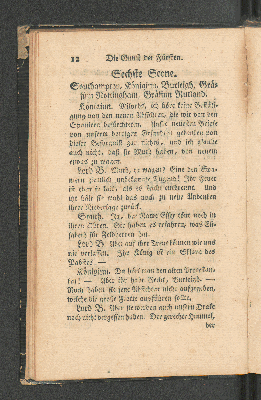 12 Die Gunst der Fürsten.
Sechste Scene.
Southampton, Königinn, Burleigh, Grä-
finn Nottingham, Gräfinn Rutland.
Königinn. Mylords, ich habe keine Bestäti-
gung von den neuen Anfällen, die wir von den
Spaniern befürchteten. Unsre neuesten Briefe
von unsern dortigen Freunden gedenken von
dieser Besorgniß gar nichts, und ich glaube
auch nicht, daß sie Muth haben, von neuem
etwas zu wagen.
Lord B. Muth, zu wagen? Eine den Spa-
niern ziemlich unbekannte Tugend! Ihr Feuer
ist eher so kalt, als es hitzig entbrannt. Und
ihr hält sie wohl das noch zu neue Andenken
ihrer Niederlage zurück.
South. Ja, der Name Essex tönt noch in
ihren Ohren. Sie haben es erfahren, was Eli-
sabeth für Feldherren hat.
Lord B. Aber auf ihre Treue können wir uns
nie verlassen. Ihr König ist ein Sklave des
Pabstes —
Königinn. Da hört man den alten Protestan-
ten! — Aber ihr habt Recht, Burleigh —
Noch haben sie jene Absichten nicht aufgegeben,
welche die große Flotte ausführen sollte.
Lord B. Aber sie werden auch unsern Drake
noch nicht vergessen haben. Der gerechte Himmel,
der